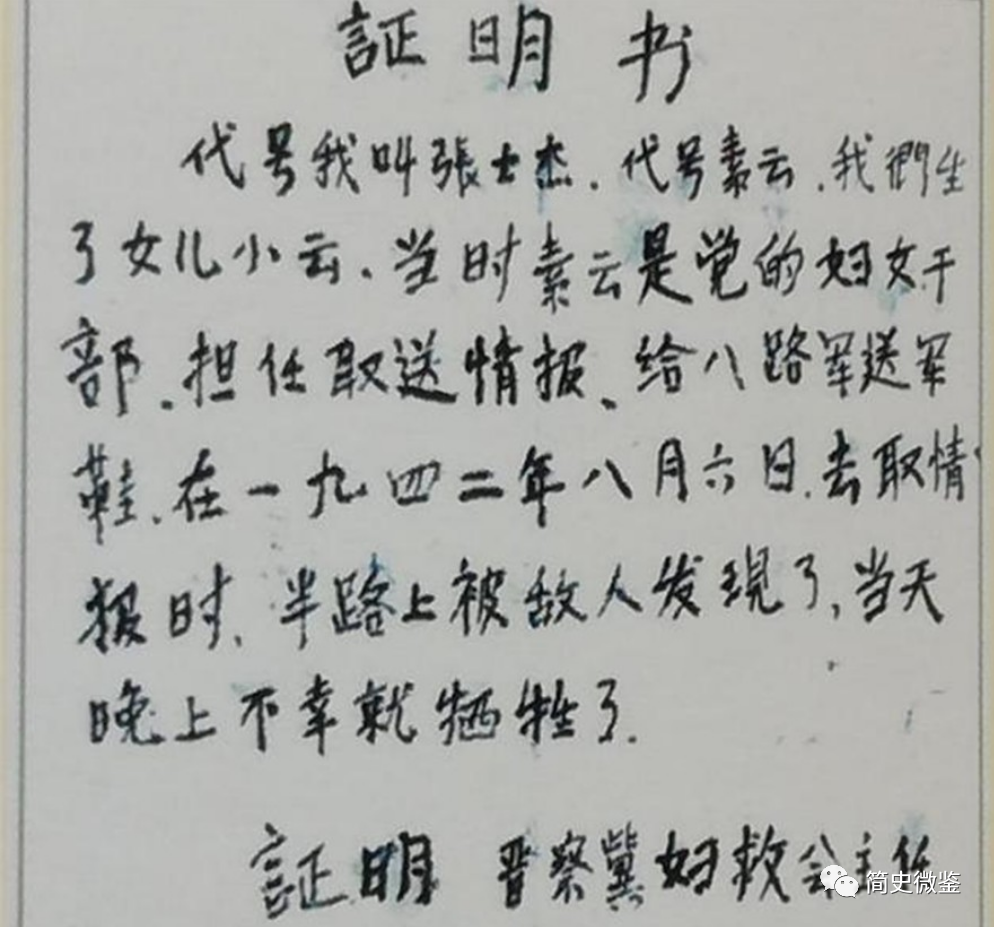 証明书
代号我叫張士杰.代号素云.我們生
了女儿小云.当时素云是党的妇女干
部.担任取送情报、给八路军送军
鞋.在一九四二年八月六日.去取情
报时.半路上被敌人发现了,当天
晚上不幸就牺牲了.
証明 晋察冀妇救会主任
简史微鉴